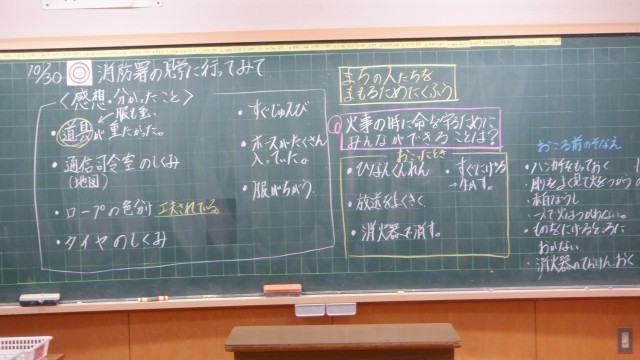 10/30 ◎ 消防署の見学に行ってみて
〈感想・分かったこと〉
服も重い
・道具が重たかった。
・通信司令室のしくみ
(地図)
・ロープの色分け 工夫されている
・タイヤのしくみ
・すぐじゅんび
・ホースがたくさん
入っていた。
・服がちがう
まちの人たちを
まもるためにくふう
火事の時に命を守るために
みんなができることは?
おこったとき
・ひなんくんれん
・放送をよくきく
・消火器で消す。
・すぐににげる
おこる前のそなえ
・ハンカチをもっておく
・まわりをよく見て火をつかう
・一人で火はつかわない。
・ものをにげるところに
おかない
・消火器のてんけんをしておく